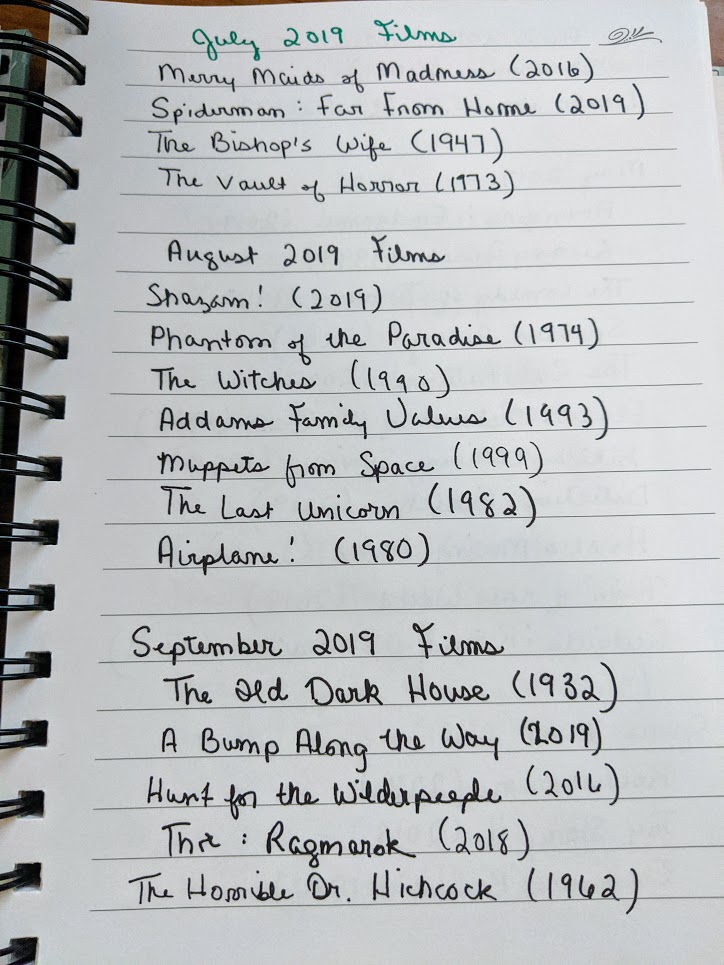 July 2019 Films
Merry Maids of Madness (2016)
Spiderman: Far From Home (2019)
The Bishop's Wife (1947)
The Vault of Horror (1973)
August 2019 Films
Shazam! (2019)
Phantom of the Paradise (1974)
The Witches (1990)
Addams Family Values (1993)
Muppets from Space (1999)
The Last Unicorn (1982)
Airplane! (1980)
September 2019 Films
The Old Dark House (1932)
A Bump Along the Way (2019)
Hunt for the Wilderpeople (2016)
Thor: Ragnarok (2018)
The Horrible Dr. Hichcock (1962)